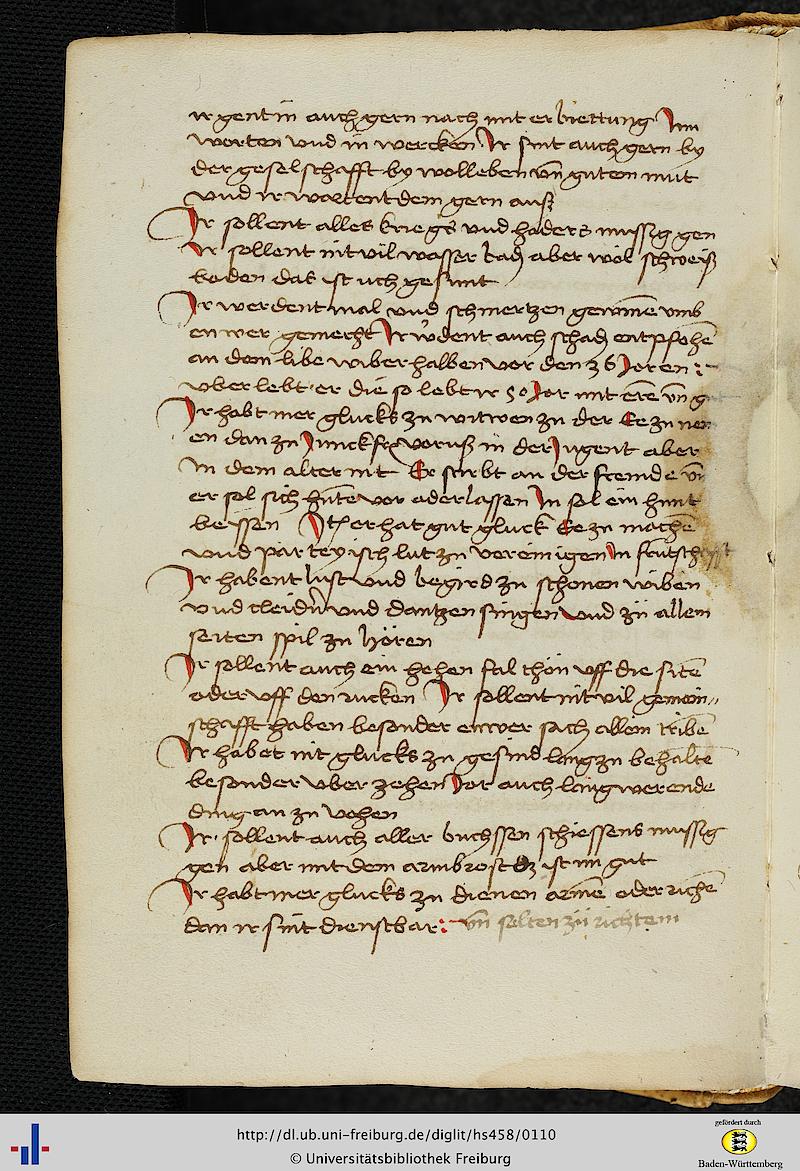 ir gent in auch gern nach mit er biettung Im
worten vnd in wercken Ir sint auch gern by
der geselschafft by wolleben vn̄ gutem mut
vnd ir wartent dem gern auß
Ir sollent alles kriegs vnd haders mussig gen
Ir sollent nit vil wasser bad aber wol schweiß
baden das ist uch gesunt
Ir werdent mal vnd schmertzen gewinnē vmb
ewer gemecht Ir w̓dent auch schad entpfohē
an dem libe wiberhalben vor den 36 Joren
vber lebt er die so lebt ir 50 Jor mit erē vn̄
Ir habt mer glucks zu witwen zu der Ee zu
en dan zu Junckfr voruß in der Jugent aber
In dem alter nit Er stirbt an der fremde vn̄
er sol sich hutē vor aderlassen In sol ein hunt
beissen It̄ er hat gut gluck Ee zu machē
vnd parteyisch lut zu vereinigen In fruntschafft
Ir habent lust vnd begird zu schonen wiben
vnd cleidn̄ vnd dantzen singen vnd zu allem
seiten spil zu hören
Ir sollent auch ein hohen fal thön vff die sitē
oder vff den rucken Ir sollent nit vil gemein„
schafft haben besonder ewer sach allein tribē
Ir habet nit glucks zu gesind lang zu behaltē
besonder vber zehen Jor auch langwerende
ding an zu vohen
Ir sollent auch aller buchssen schiessens mussig
gen aber mit dem armbrost dz ist im gut
Ir habt mer glucks zu dienen armē oder richē
dan ir sint dienstbar vn̄ selten zu richtem
http://dl.ub.uni-freiburg.de/diglit/hs458/0110
© Universitätsbibliothek Freiburg
gefördert durch
Baden-Württemberg